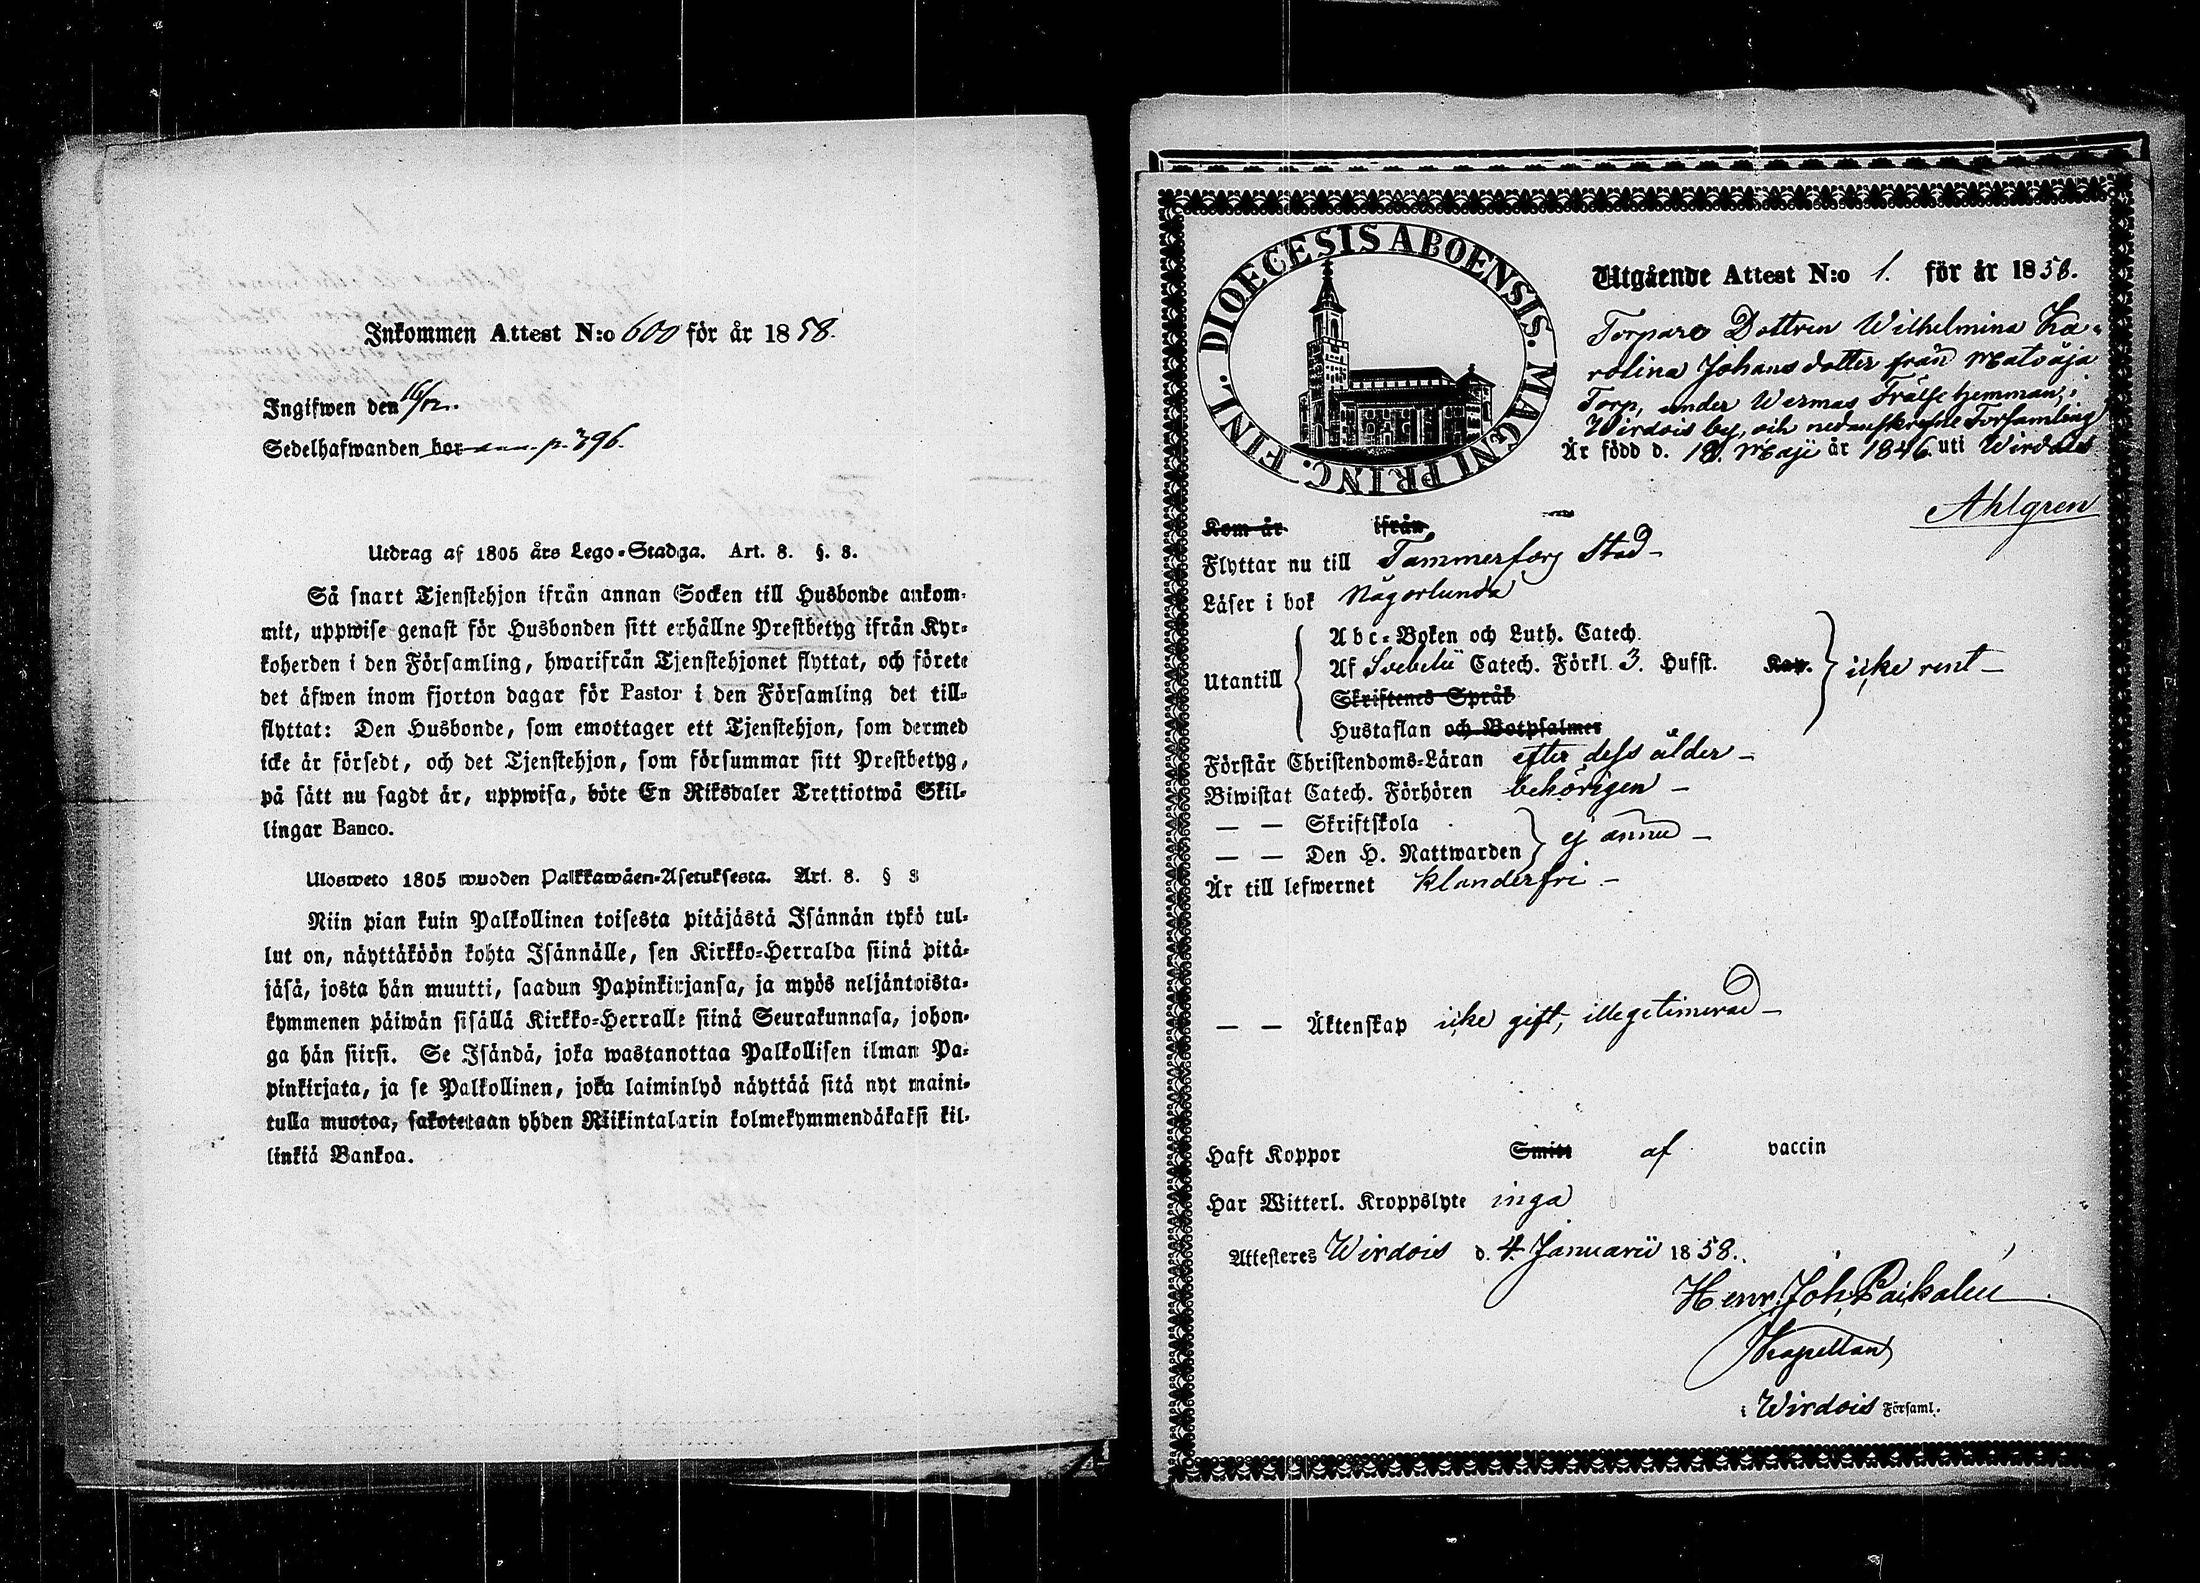 Inkommen Attest N:o 600 för år 1858.
Ingifwen den 16/12.
Sedelhafwanden bor p. 396.
Utdrag af 1805 års Lego-Stadga. Art. 8. §. 8.
Så snart Tjenstehjon ifrån annan Socken till Husbonde ankom-
mit, uppwise genast för Husbonden sitt erhållne Prestbetyg ifrån Kyr-
koherden i den Församling, hwarifrån Tjenstehjonet flyttat, och förete
det äfwen inom fjorton dagar för Pastor i den Församling det till-
flyttat: Den Husbonde, som emottager ett Tjenstehjon, som dermed
icke är försedt, och det Tjenstehjon, som försummar sitt Prestbetyg,
på sätt nu sagdt är, uppwisa, böte En Riksdaler Trettiotwå Skil-
lingar Banco.
Ulosweto 1805 wuoden Palkkawäen-Asetuksesta. Art. 8. § 8
Niin pian kuin Palkollinen toisesta pitäjästä Isännän tykö tul-
lut on, näyttäköön kohta Isännälle, sen Kirkko-Herralda siinä pitä-
jäsä, josta hän muutti, saadun Papinkirjansa, ja myös neljäntoista-
kymmenen päiwän sisällä Kirkko-Herralle siinä Seurakunnasa, johon-
ga hän siirsi. Se Isändä, joka wastanottaa Palkollisen ilman Pa-
pinkirjata, ja se Palkollinen, joka laiminlyö näyttää sitä nyt maini-
tulla muotoa, sakotetaan yhden Riikintalarin kolmekymmendäkaksi kil-
linkiä Bankoa.
DIOECESIS ABOENSIS. MAGNI PRINC. FINL.
Utgående Attest N:o 1. för år 1858.
Torpare Dottren Wilhelmina Ka-
rolina Johansdotter från Matoäja
Torp, under Wermas Frälse hemman, i
Wirdois by, och nedanskrefne Församling
Är född d. 18. Maji år 1846 uti Wirdois
Ahlgren
Kom år ifrån
Flyttar nu till Tammerfors Stad
Läser i bok Någorlunda
Utantill
Abc-Boken och Luth. Catech.
Af Svebelii Catech. Förkl. 3. Hufst. Kap. icke rent
Skriftenes Språk
Hustaflan och Botpsalmer
Förstår Christendoms-Läran efter dess ålder
Biwistat Catech. Förhören behörigen
— — Skriftskola
— — Den H. Nattwarden ej ännu
Är till lefwernet klanderfri
— — Äktenskap icke gift, illegitimerad
Haft Koppor Smitt af vaccin
Har Witterl. Kroppslyte inga
Attesteres Wirdois d. 4. Januarii 1858.
Henr. Joh. Paikalén
Kapellan
i Wirdois Församl.